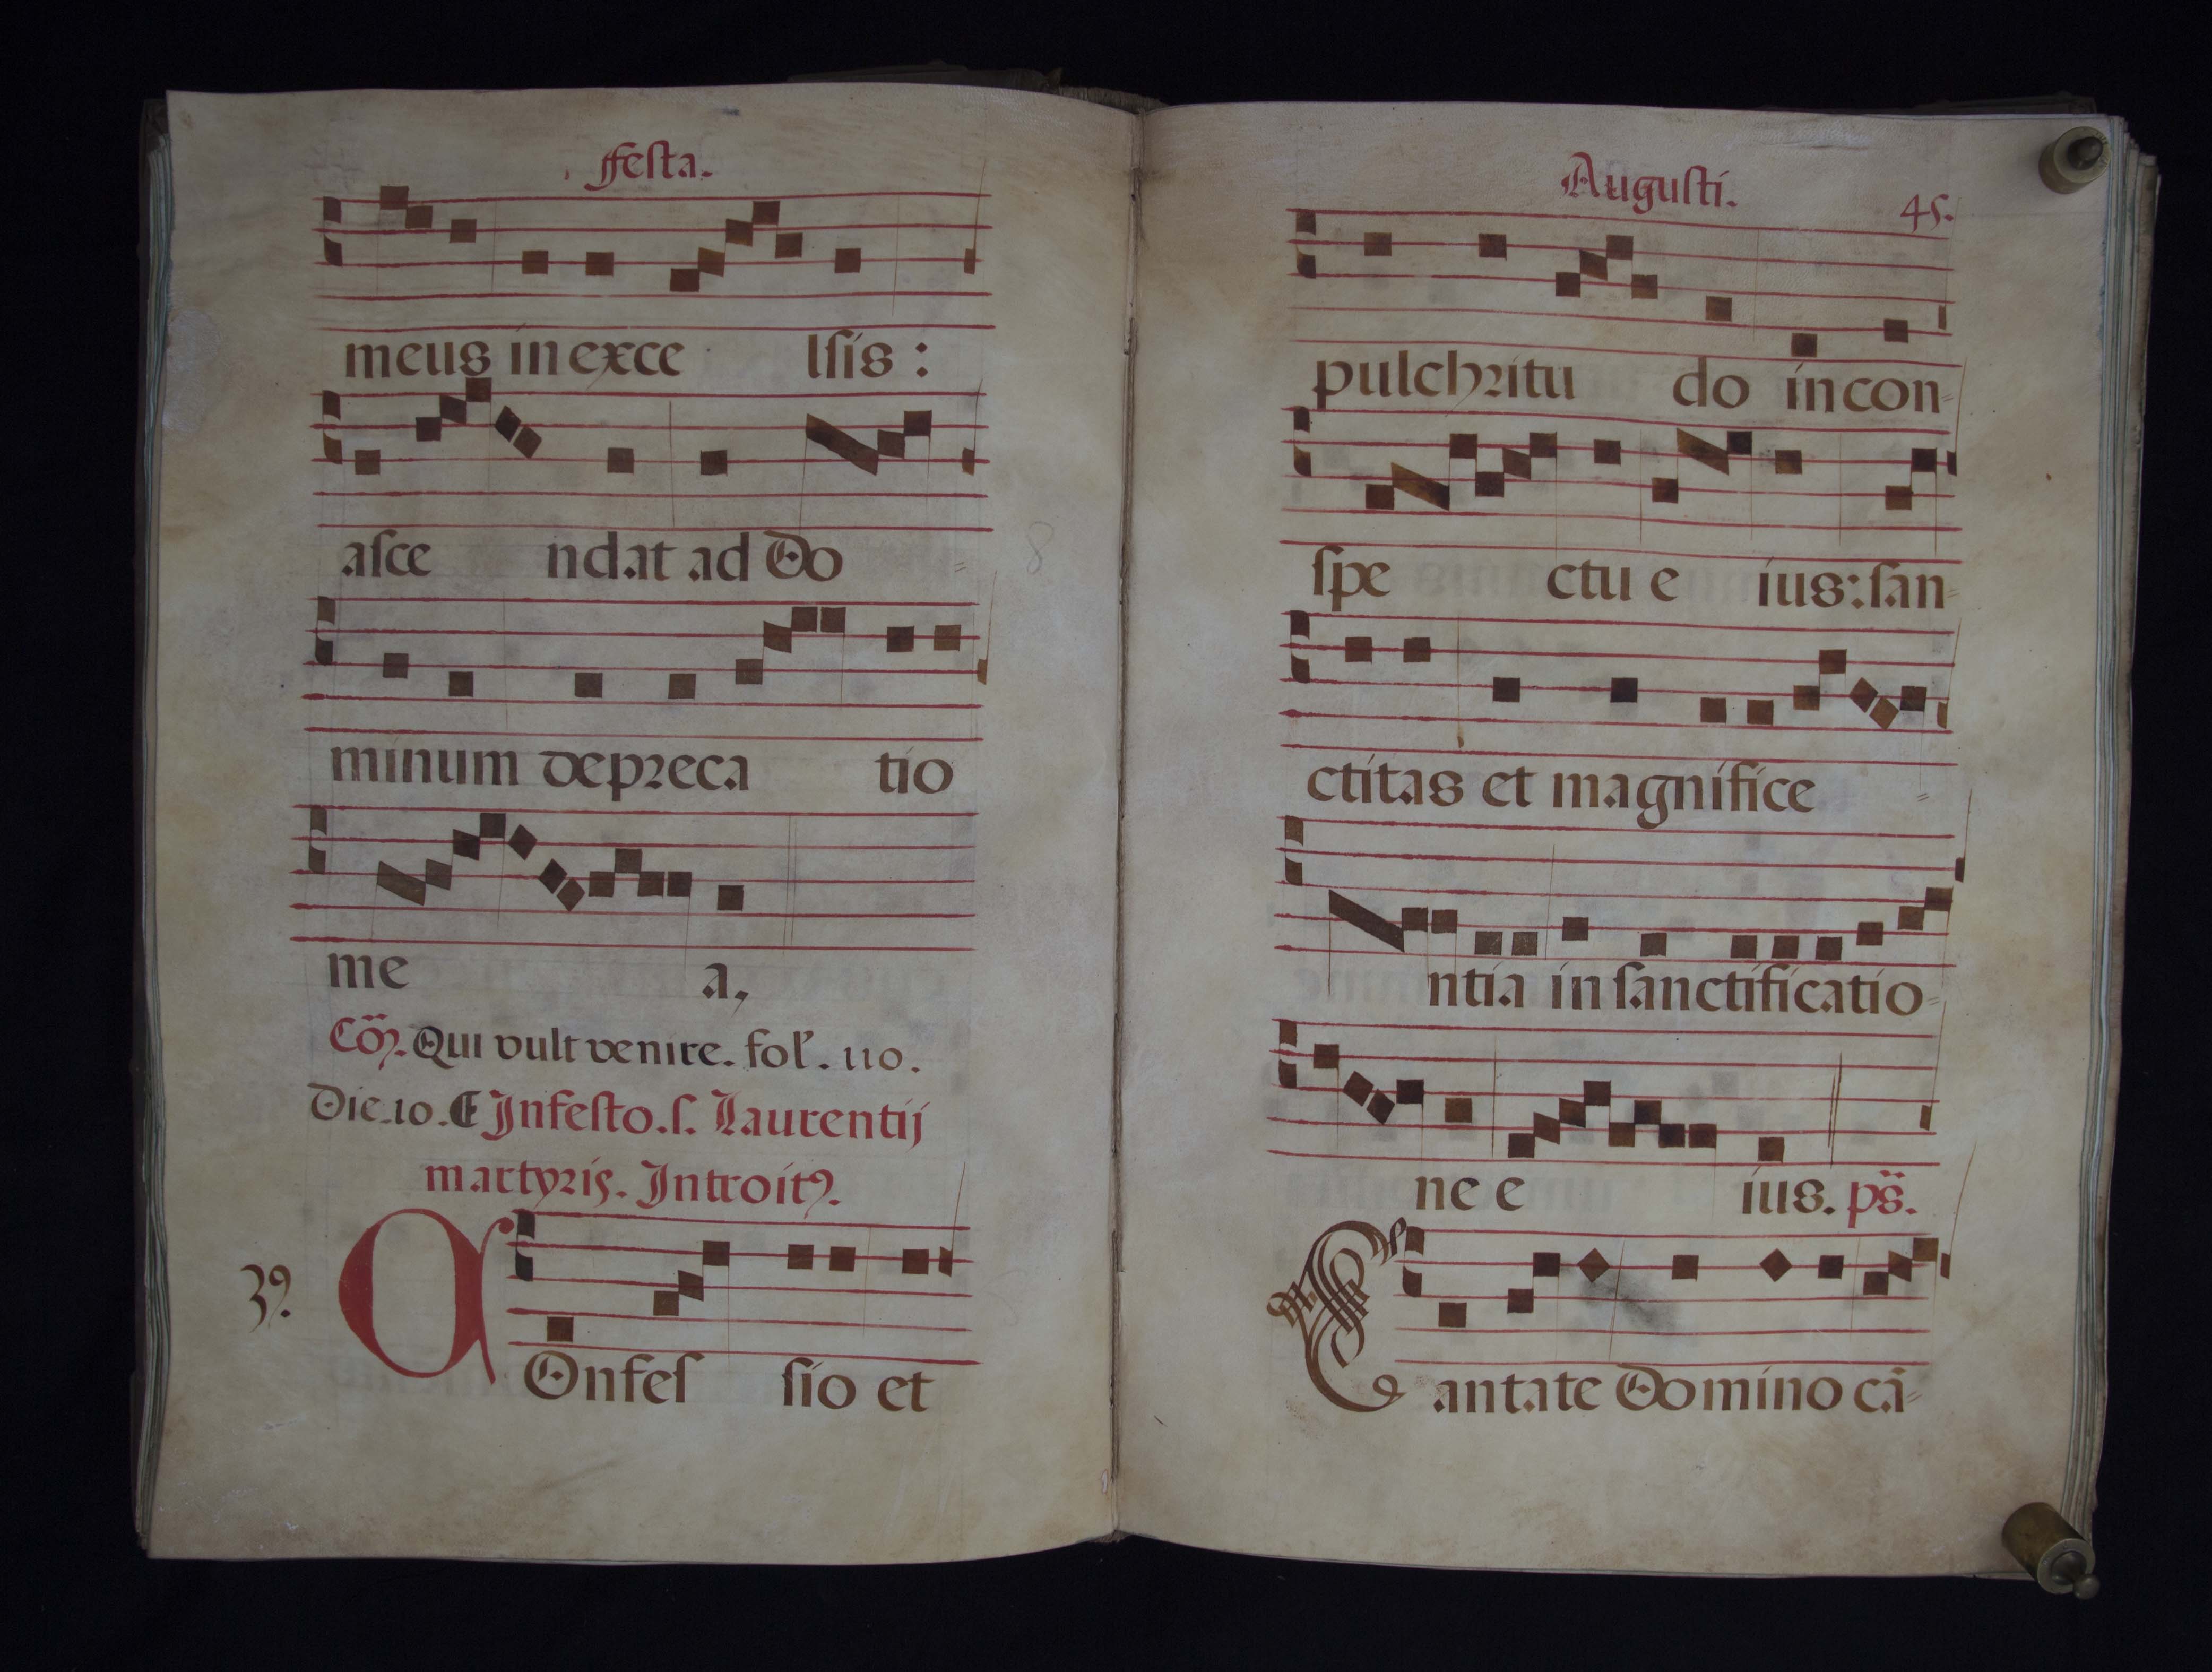 ffesta.
meus in exce lsis :
asce ndat ad Do=
minum depreca tio
me a,
Cõ₃. Qui vult venire. fol'. 110.
Die.10. In festo. s. Laurentij
martyris. Introit9.
39.
COnfes sio et
Augusti.
45.
pulchritu do in con=
spe ctu e ius: san=
ctitas et magnifice =
ntia in sanctificatio=
ne e ius. ps̈.
Cantate Domino cã=